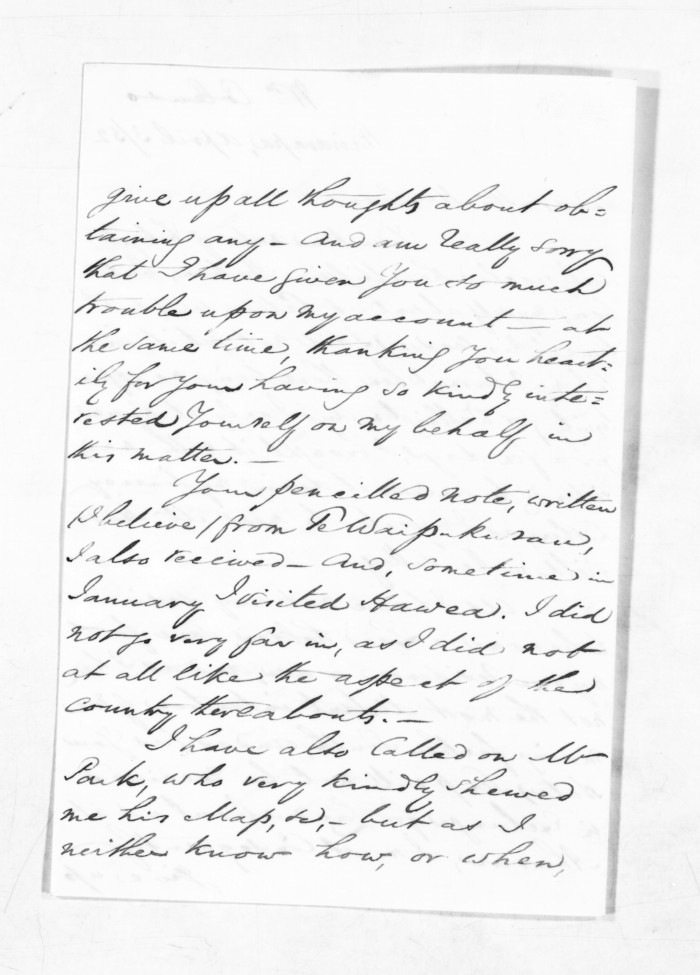 give up all thoughts about ob=
taining any – And am really sorry
that I have given You so much
trouble upon my account – at
the same time, thanking You heart=
ily for Your having so kindly inte=
rested Yourself on my behalf in
this matter. –
Your pencilled note, written
(I believe) from Te Waipukurau,
I also received – And, sometime in
January I visited Hawea. I did
not go very far in, as I did not
at all like the aspect of the
country thereabouts. –
I have also Called on Mr
Park, who very kindly shewed
me his Map, &c, – but as I
neither know how, or when,